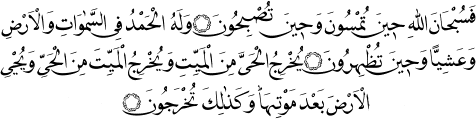 فَسُبْحَانَ اللهِ حِينَ تُمْسُونَ وَحِينَ تُصْبِحُونَ ۝ وَلَهُ الْحَمْدُ فِي السَّمٰوَاتِ وَالْاَرْضِ
وَعَشِيًّا وَحِينَ تُظْهِرُونَ ۝ يُخْرِجُ الْحَيَّ مِنَ الْمَيِّتِ وَيُخْرِجُ الْمَيِّتَ مِنَ الْحَيِّ وَيُحْيِي
الْاَرْضَ بَعْدَ مَوْتِهَا ۗ وَكَذٰلِكَ تُخْرَجُونَ ۝